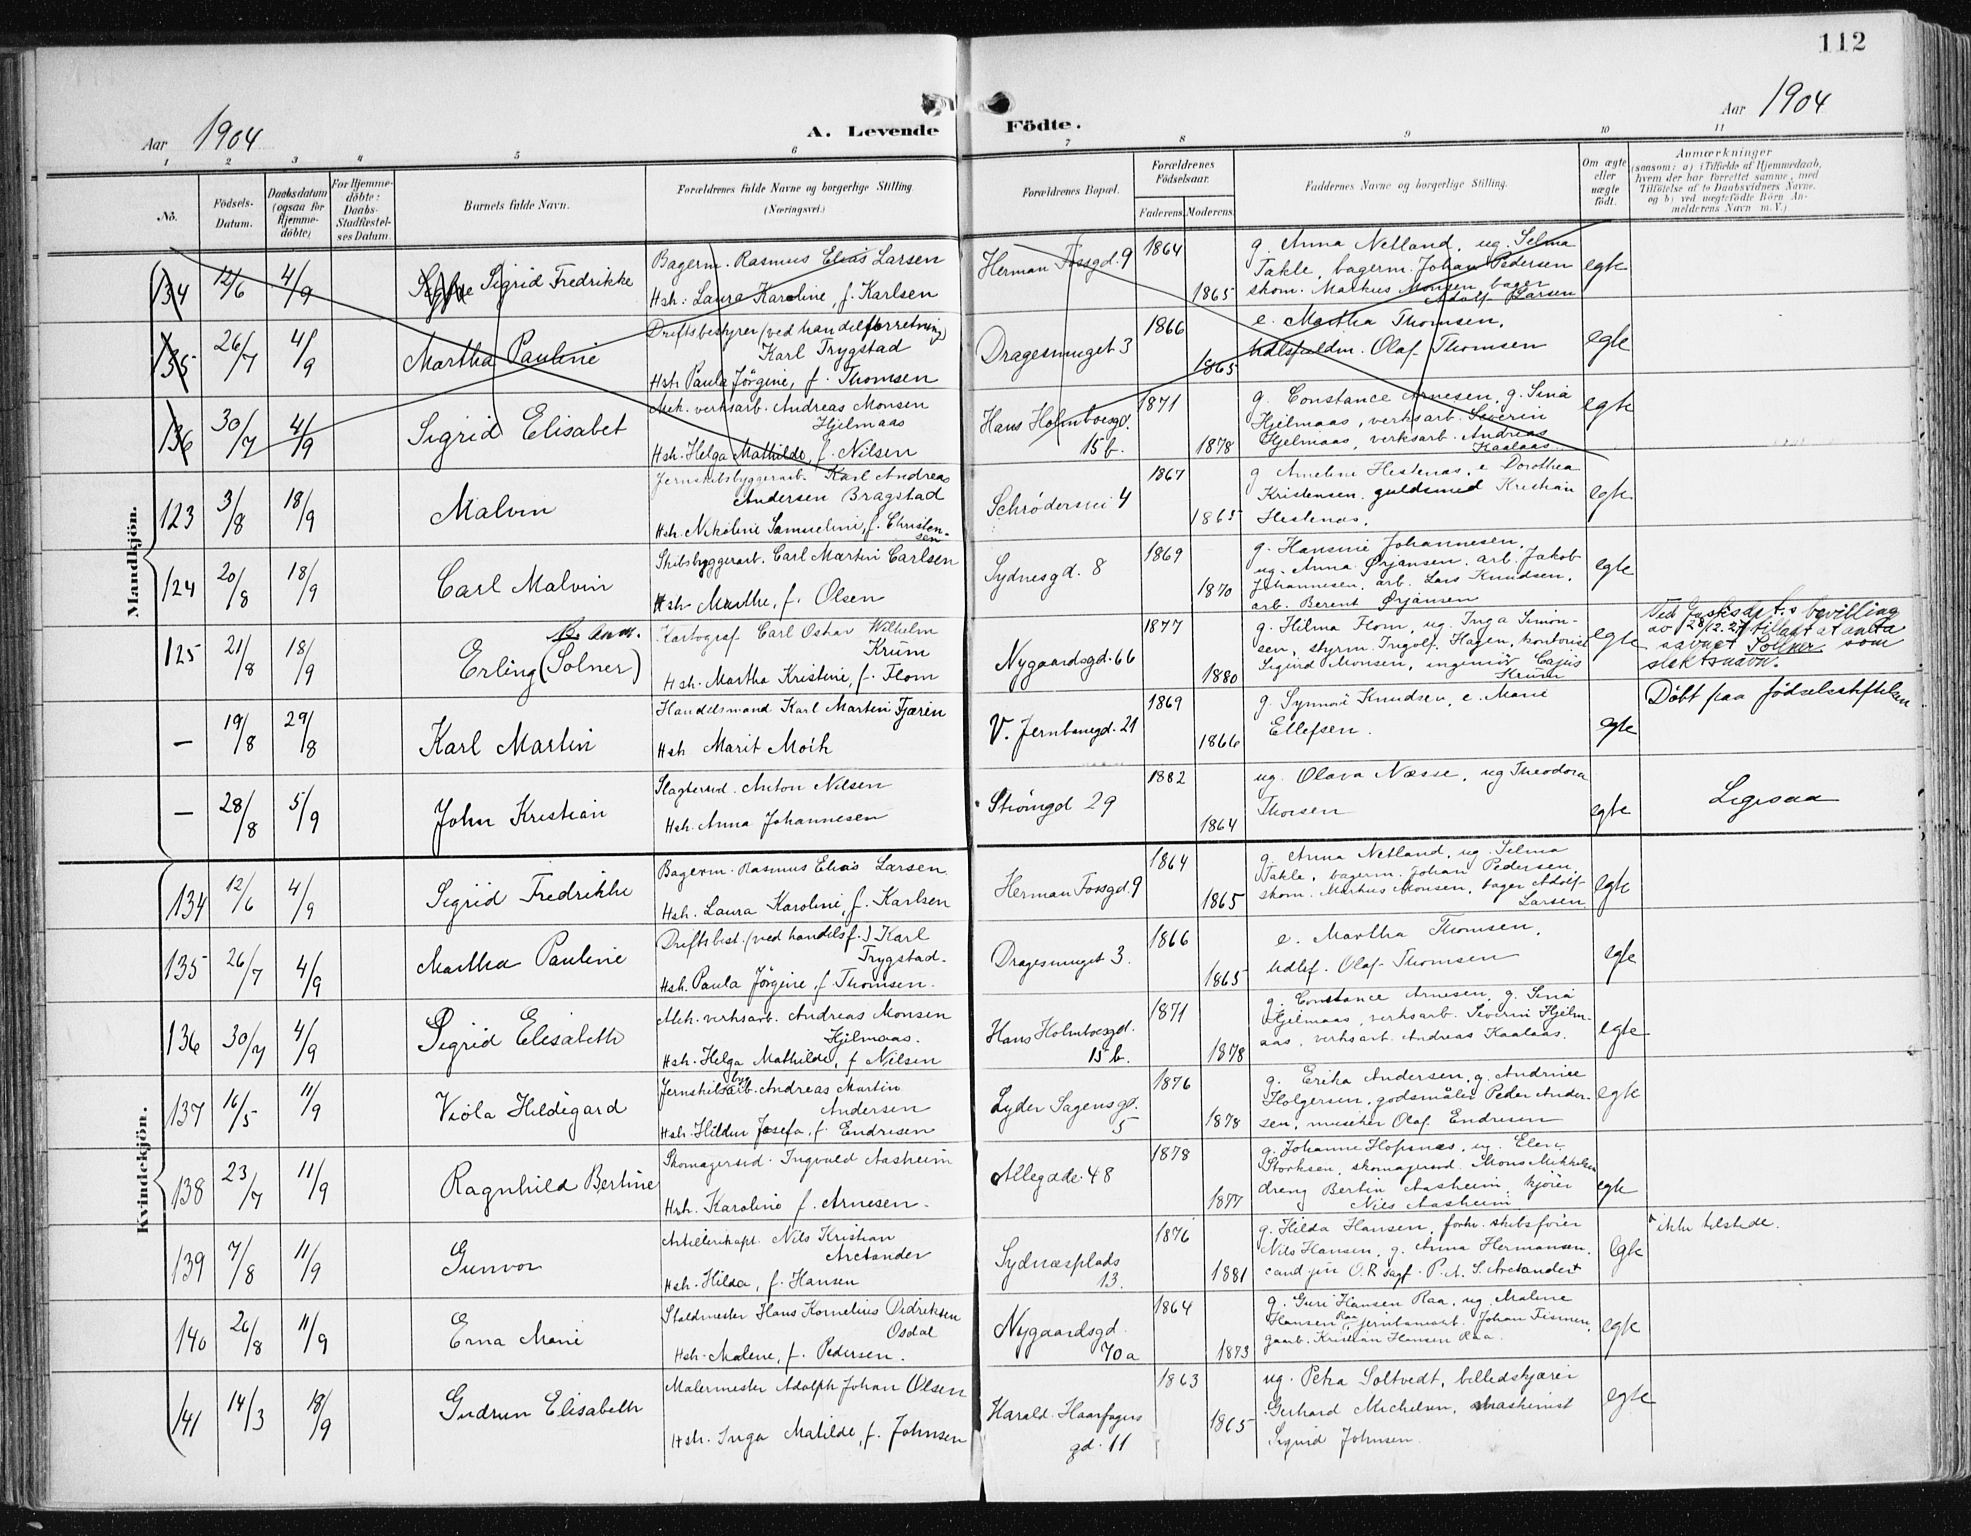 112
Aar 1904
A. Levende Födte.
Aar 1904
1 2 3 4 5 6 7 8 9 10 11
No.
Födsels-Datum.
Daabsdatum (ogsaa for Hjemme-döbte)
For Hjemme-döbte: Daabs-Stadfæstel-ses Datum.
Barnets fulde Navn.
Forældrenes fulde Navne og borgerlige Stilling. (Næringsvei.)
Forældrenes Bopæl.
Forældrenes Födselsaar.
Faderens. Moderens.
Faddernes Navne og borgerlige Stilling.
Om ægte eller uægte født.
Anmærkninger
(saasom: a) i Tilfælde af Hjemmedaab, hvem der har forrettet samme, med Tilföielse af to Daabsvidners Navne. og b) ved uægtefödte Börn Anmelderens Navn m. V.)
Mandkjön.
134 12/6 4/9 Sigrid Fredrikke
Bagerm. Rasmus Elias Larsen
Hstr. Laura Karoline, f. Karlsen
Herman Fossgd. 9 1864 1865
g. Anna Netland, ug. Selma
Takle, bagerm. Johan Pedersen
skom. Markus Monsen, bager
Adolf Larsen
egte
135 26/7 4/9 Martha Pauline
Driftsbestyrer (ved handelsforretning)
Karl Trygstad
Hstr. Paula Jörgine, f. Thomsen
Dragesmuget 3 1866 1865
e. Martha Thomsen,
Olaf Thomsen
egte
136 30/7 4/9 Sigrid Elisabet
Mek. verksarb. Andreas Monsen
Hjelmaas
Hstr. Helga Mathilde, f. Nilsen
Hans Holmboesgd. 15 b. 1871 1878
g. Constance Arnesen, g. Sina
Hjelmaas, verksarb. Severin
Hjelmaas, verksarb. Andreas
Kaalaas
egte
123 3/8 18/9 Malvin
Jernskibsbyggerarb. Karl Andreas
Andersen Bragstad
Hstr. Nikoline Samueline, f. Christen-
sen
Schrödersmi 4 1867 1865
g. Ameline Hestenæs, e. Dorothea
Kristensen, guldsmed Kristian
Hestenæs.
egte
124 20/8 18/9 Carl Malvin
Skibsbyggerarb. Carl Martin Carlsen
Hstr. Marthe, f. Olsen
Sydnesgd. 8 1869 1870
g. Hansine Johannesen,
ug. Anna Ørjansen, arb. Jakob
Johannesen, arb. Lars Knudsen,
arb. Berent Ørjansen
egte
125 21/8 18/9 Erling (Solner)
Kartograf Carl Oskar Wilhelm
Krum
Hstr. Martha Kristine, f. Flom
Nygaardsgd. 66 1877 1880
g. Hilma Flom, ug. Inga Simon-
sen, styrm. Ingolf Hagen, kontorist
Sigurd Monsen, ingeniør Cajus
Krum
egte
Ved Justisdepts bevilling
av 28/12.27 tillatt at anta
navnet Solner som
slektsnavn.
— 19/8 29/8 Karl Martin
Handelsmand Karl Martin Fjærin
Hstr. Marit Moik
V. Jernbanegd. 21 1869 1866
g. Synnøve Knudsen, e. Marie
Ellefsen.
egte
Döbt paa födselsstiftelsen
— 28/8 5/9 John Kristian
Slagtersvd. Anton Nilsen
Hstr. Anna Johannesen
Strömgd 29 1882 1864
ug. Olava Næsse, ug Theodora
Thorsen
egte
Ligesaa
Kvindekjön.
134 12/6 4/9 Sigrid Fredrikke
Bagerm. Rasmus Elias Larsen
Hstr. Laura Karoline, f. Karlsen
Herman Fossgd. 9 1864 1865
g. Anna Netland, ug. Selma
Takle, bagerm. Johan Pedersen,
skom. Markus Monsen, bager Adolf
Larsen.
egte
135 26/7 4/9 Martha Pauline
Driftsbest. (ved handelsf.) Karl
Trygstad.
Hstr. Paula Jörgine, f. Thomsen.
Dragesmuget 3. 1866 1865
e. Martha Thomsen,
Udlsf. Olaf Thomsen
egte
136 30/7 4/9 Sigrid Elisabeth
Mek. verksarb. Andreas Monsen
Hjelmaas.
Hstr. Helga Mathilde, f Nilsen
Hans Holmboesgd. 15 b. 1871 1878
g. Constance Arnesen, g. Sina
Hjelmaas, verksarb. Severin Hjelm-
aas, verksarb. Andreas Kaalaas.
egte
137 16/5 11/9 Viola Hildegard
Jernskibsbyg.arb. Andreas Martin
Andersen
Hstr. Hildur Josefa, f. Endresen
Lyder Sagensgd. 5 1876 1878
g. Erika Andersen, g. Andrine
Holgersen, godsmåler Peder Ander-
sen, musiker Olaf Endresen
egte
138 23/7 11/9 Ragnhild Bertine
Skomagersvd. Ingvald Aasheim
Hstr. Karoline f. Arnesen.
Allegade 48 1878 1877
g. Johanne Hopsnæs, ug. Elen
Storksen, skomagersvd. Mons Mikkelsen
dreng Bertin Aasheim, kjører
Nils Aasheim
egte
139 7/8 11/9 Gunvor
Artillerikapt. Nils Kristian
Arctander
Hstr. Hilda, f. Hansen
Sydnæsplads 13. 1876 1881
g. Hilda Hansen, forhv. skibsfører
Nils Hansen, g. Anna Hermansen,
cand jur O.R sagf. P. A. S. Arctander+
egte
+ ikke tilstede.
140 26/8 11/9 Erna Marie
Staldmester Hans Kornelius Didriksen
Osdal
Hstr. Malene, f. Pedersen.
Nygaardsgd. 70 a 1864 1873
g. Guri Hansen Raa, ug. Malene
Hansen Raa, jernbanearb. Johan Fismen,
gaarb. Kristian Hansen Raa.
egte
141 14/3 18/9 Gudrun Elisabeth
Malermester Adolph Johan Olsen
Hstr. Inga Matilde, f. Johnsen
Harald Haarfagers gd. 11 1863 1865
ug. Petra Soltvedt, billedskjærer
Gerhard Michelsen, maskinist
Sigurd Johnsen.
egte